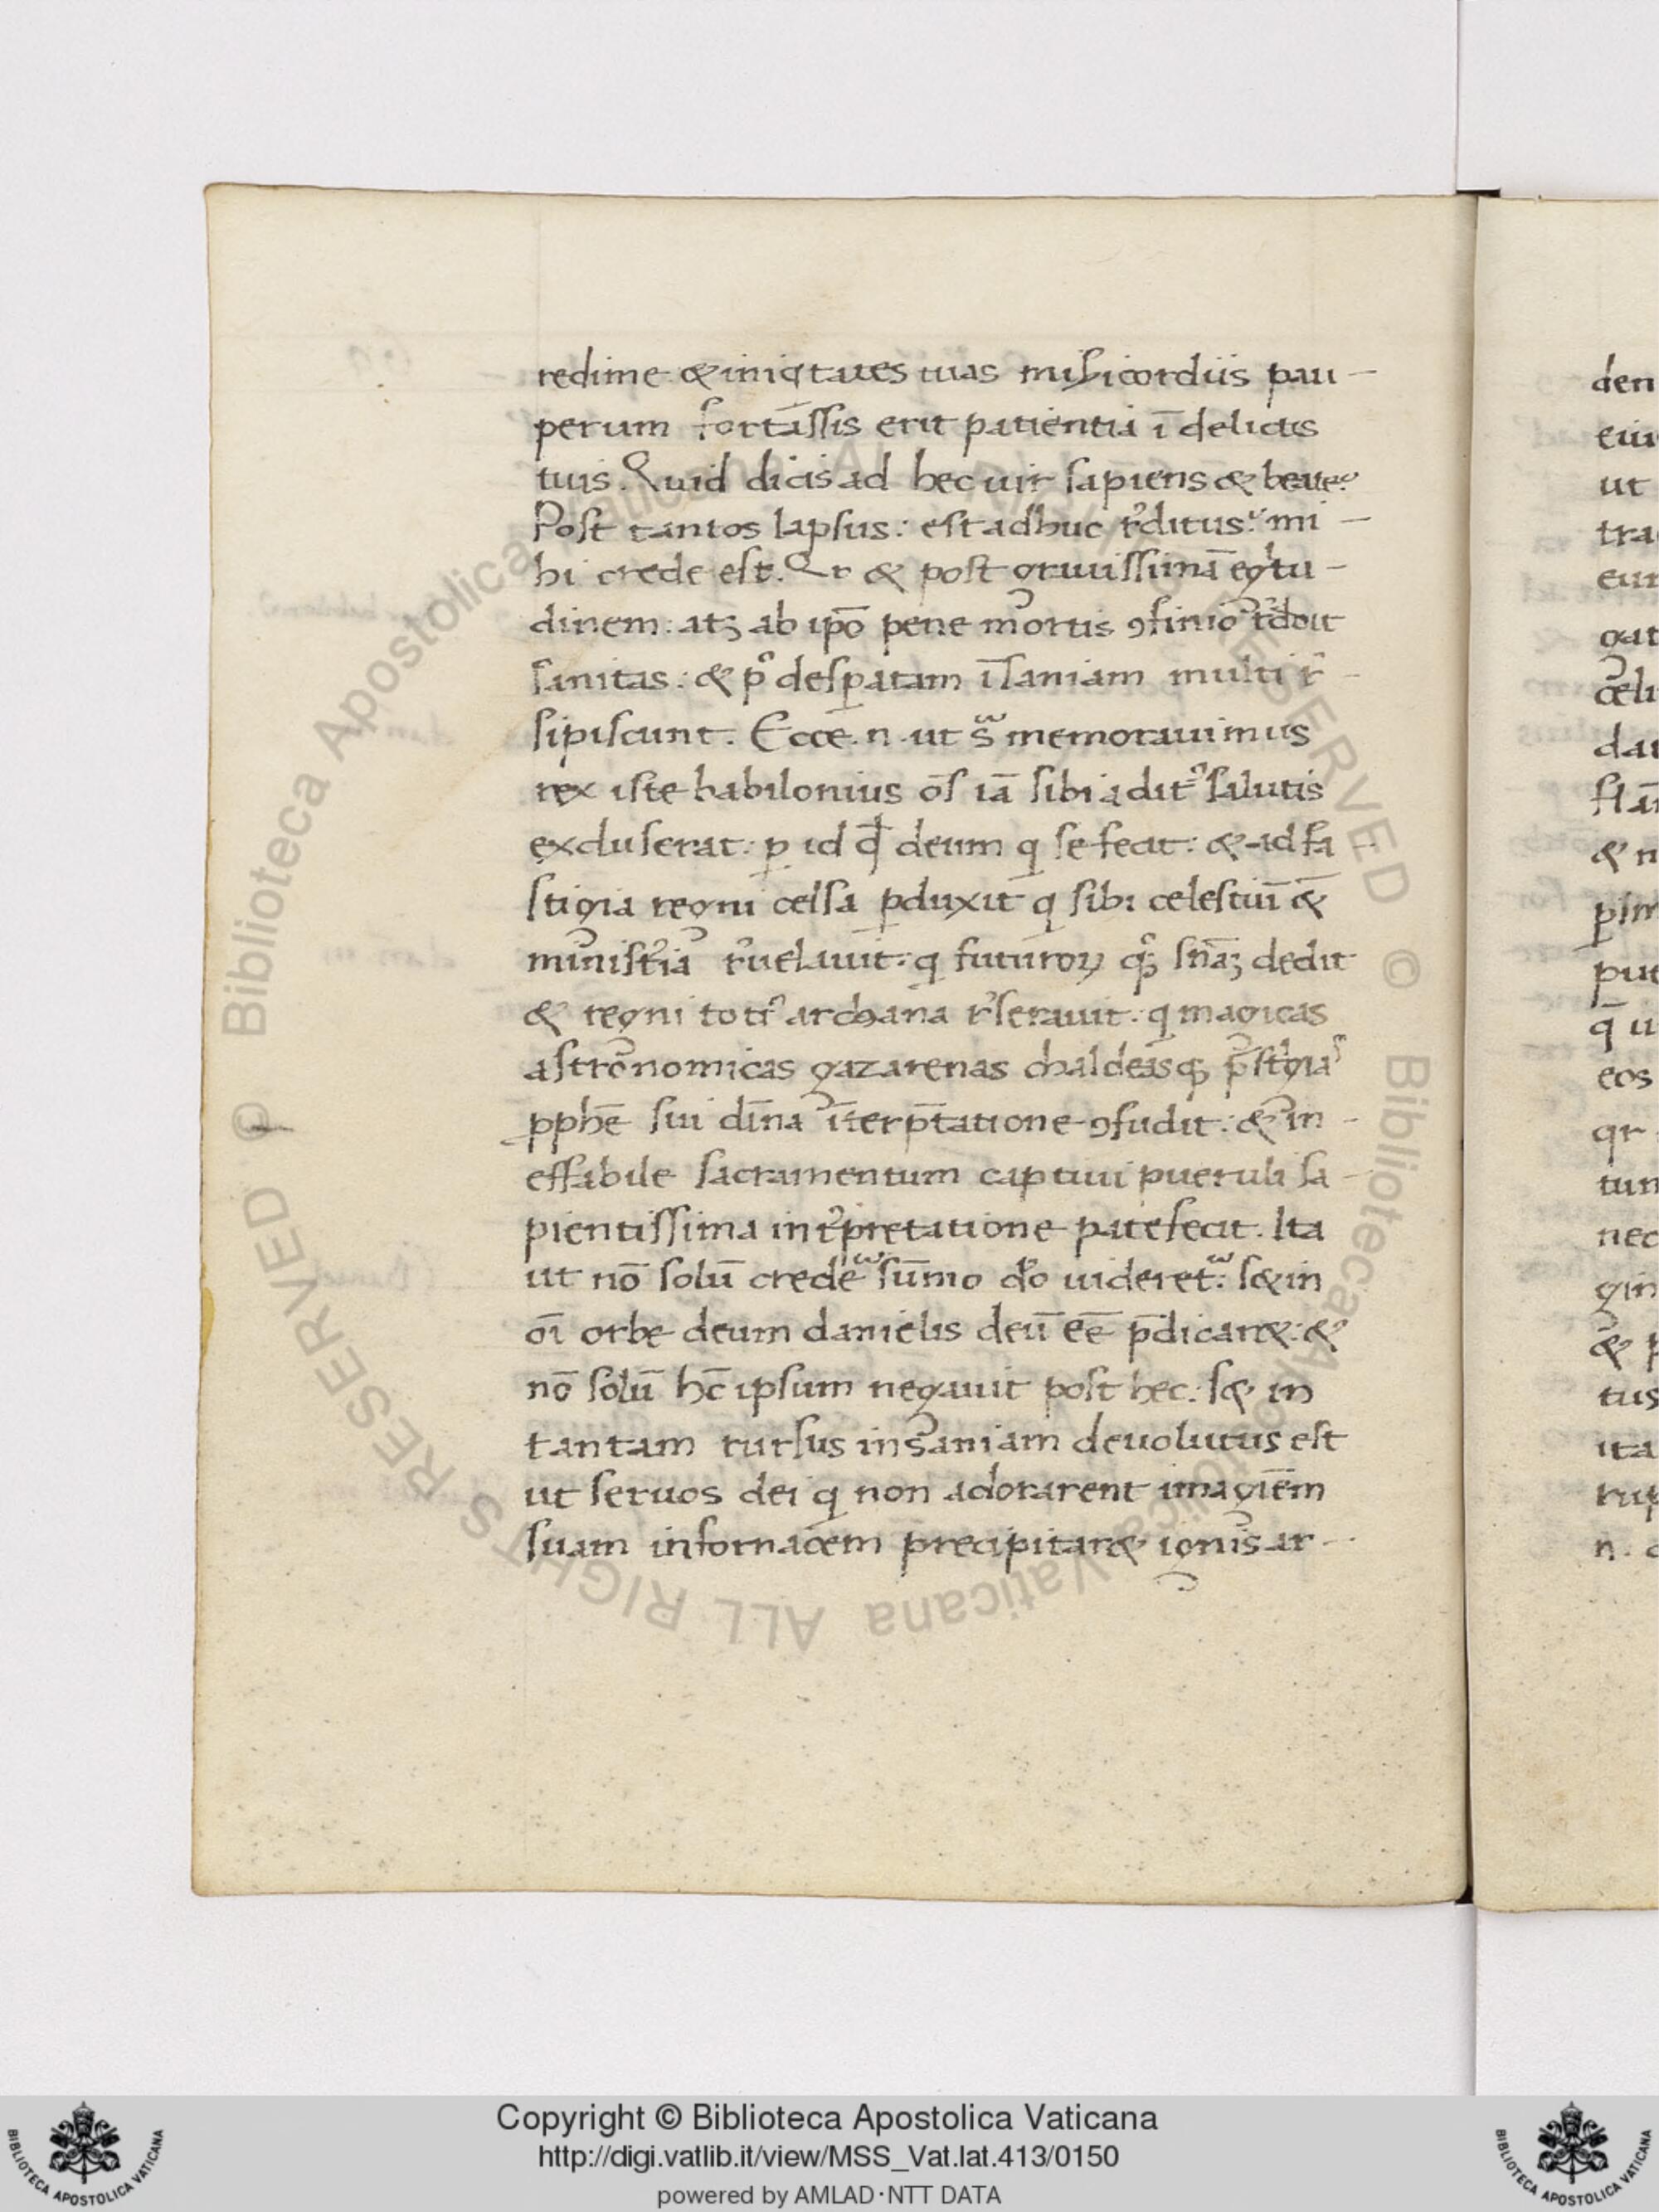 redime & iniq̇tates tuas misicordiis pau-
perum fortassis erit patientia ī delictis
tuis. Quid dicis ad hec uir sapiens & beate?
Post tantos lapsus: est adhuc rͤditus? mi-
hi crede est. Qr & post grauissimā egͥtu-
dinem: atqꝫ ab ip̄o pene mortis ꝯfinio rͤdiit
sanitas: & pꝰ despatam īsaniam multi rͤ-
sipiscunt. Ecce .n. ut sͣ memorauimus
rex iste babilonius oēs iā sibi aditꝰ salutis
excluserat: ꝑ id qđ deum qͥ se fecit: & ad fa-
stigia regni celsa ꝓduxit qͥ sibi celestiū &
ministͤia rͤuelauit: qͥ futuroꝝ qꝫ snāꝫ dedit
& regni totiꝰ archana rͤserauit. qͥ magicas
astronomicas gazarenas chaldeasqꝫ p̄stͥgias
ꝓphē sui diīna īterp̄tatione ꝯfudit: & in-
effabile sacramentum captiui pueruli sa-
pientissima intͤpretatione patefecit. Ita
ut nō solū credeͤ sūmo dͤo uideretͬ: s& in
oī orbe deum danielis deū eē p̄dicar&: &
nō solū hͨ ipsum negauit post hec: s& in
tantam rursus insaniam deuolutus est
ut seruos dei qͥ non adorarent imagīem
suam in fornacem precipitar& ignis ar-
den
eiu
ut
tra
eur
gat
celi
dat
& n
put
eos
qr
tun
nec
gin
tus
ita
Copyright © Biblioteca Apostolica Vaticana
http://digi.vatlib.it/view/MSS_Vat.lat.413/0150
powered by AMLAD·NTT DATA
© Biblioteca Apostolica Vaticana ALL RIGHTS RESERVED © Biblioteca Apostolica Vaticana ALL RIGHTS RESERVED
BIBLIOTECA APOSTOLICA VATICANA
BIBLIOTECA APOSTOLICA VATICANA